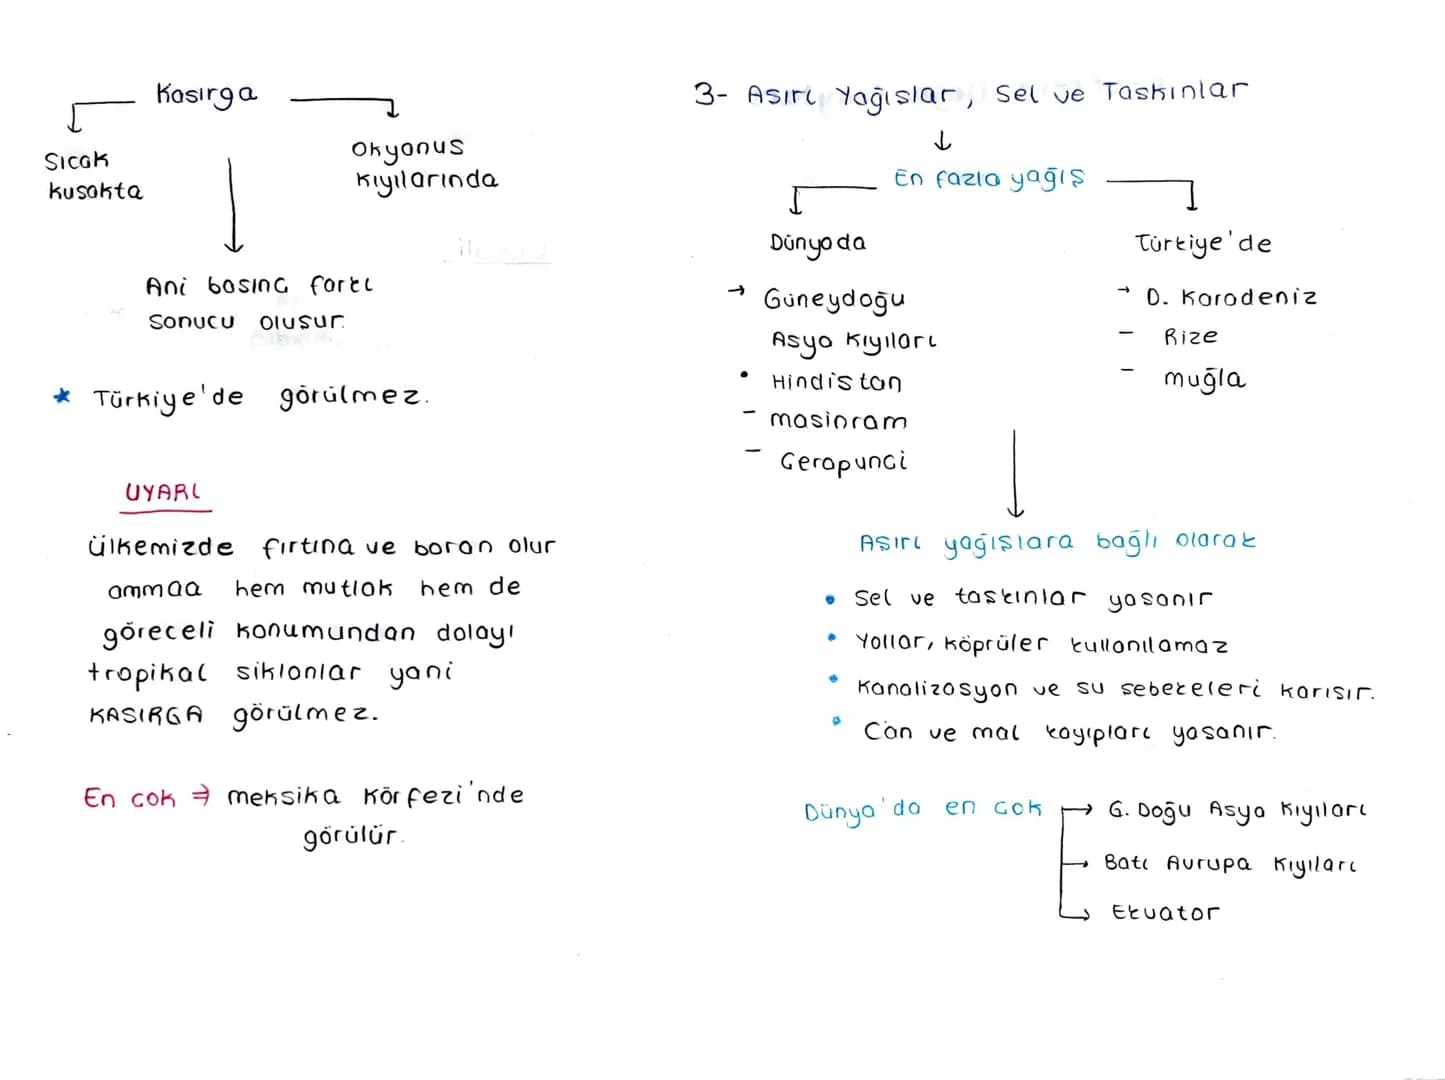 Kasırga
Sıcak
kusakta
Okyanus
kıyılarında
Ani basınc farkı
sonucu olusur.
Türkiye'de görülmez.
UYARI
ülkemizde fırtına ve boran olur
ammaa hem mutlak hem de
göreceli konumundan dolayı
tropikal siklonlar yani
KASIRGA görülmez.
En cok ⇒ meksika Körfezi'nde
görülür.
3- Asırı Yağıslar, Sel ve Taskınlar
En fazla yağıs
Dünyada
→ Güneydoğu
Asya kıyıları
• Hindistan
- masinram
- Cerapunci
Türkiye'de
→ D. Karadeniz
- Rize
- muğla
Asırı yağıslara bağlı olarak
• Sel ve taskınlar yasanır
• Yollar, köprüler kullanılamaz
• Kanalizasyon ve su sebekeleri karısır.
• Can ve mal kayıpları yasanır.
Dünya'da en cok → G. Doğu Asya kıyıları
→ Batı Avrupa kıyıları
→ Ekvator